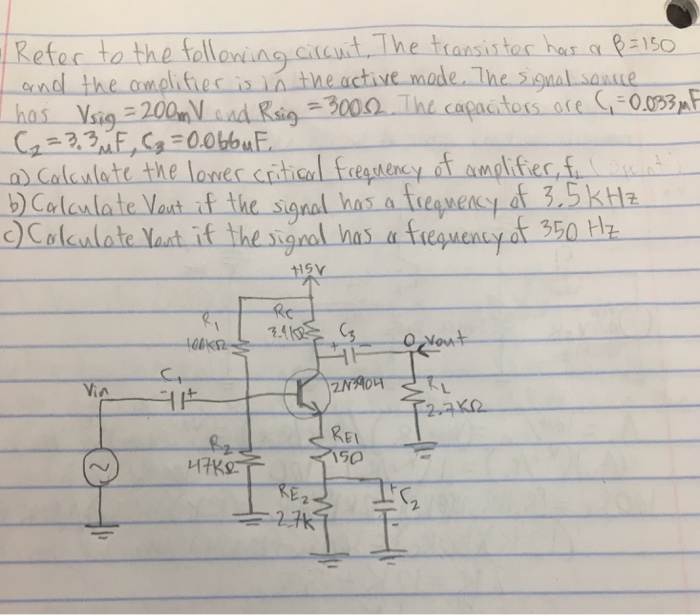 Refer to the following circuit. The transistor has a β=150
and the amplifier is in the active mode. The signal source
has Vsig = 200mV and Rsig = 300Ω. The capacitors are C₁=0.033μF
C₂=3.3μF, C₃=0.066uF.
a) Calculate the lower critical frequency of amplifier, f
b) Calculate Vout if the signal has a frequency of 3.5kHz
c) Calculate Vout if the signal has a frequency of 350 Hz
+15V
R₁
Rc
C₃
+ -
Vout
C₁
Vin
- +
2N3904
RL
2.7KΩ
RE1
150
R₂
47KΩ
RE₂
2.7K
+
C₂
-